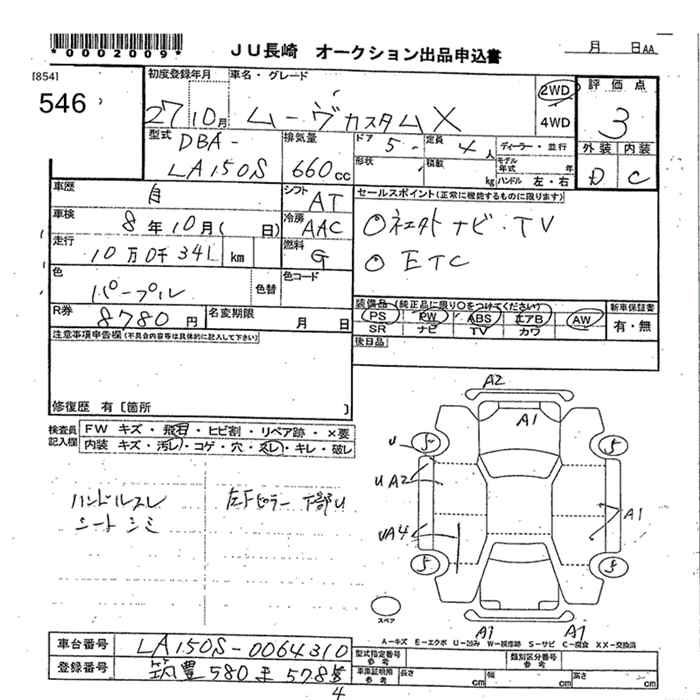 *0002009*
JU長崎 オークション出品申込書
月 日AA
[854]
546
初度登録年月
車名・グレード
27 10月 ムーヴカスタムX
2WD
4WD
評価点
3
外装 内装
D C
型式
DBA-
LA150S
排気量
660cc
ドア 5
定員 4人
形状
積載 kg
ディーラー・並行
モデル年式 年
ハンドル 左・右
車歴 自
シフト AT
セールスポイント(正常に機能するものに限ります)
車検 8年10月( 日)
冷房 AAC
走行 10万0千341 km
燃料 G
○ナビ・TV
○ETC
色 パープル
色替
色コード
R券 8780円
名変期限 月 日
装備品(純正品に限り○をつけてください)
PS PW ABS エアB AW
SR ナビ TV カワ
新車保証書
有・無
注意事項申告欄(不具合内容等は具体的に記入して下さい)
後日品
修復歴 有[箇所 ]
検査員記入欄
FW キズ・飛石・ヒビ割・リペア跡・×要
内装 キズ・汚レ・コゲ・穴・スレ・キレ・破レ
ハンドルスレ
シートシミ
左Fピラー下部U
A2
A1
U
5
5
UA2
UA4
A1
5
5
スペア
A1 A1
A-キズ E-エクボ U-凹み W-補修跡 S-サビ C-腐食 XX-交換済
車台番号 LA150S-0064310
型式指定番号 参考
類別区分番号 参考
登録番号 筑豊580
車庫証明用 参考
長さ cm
幅 cm
高さ cm
4